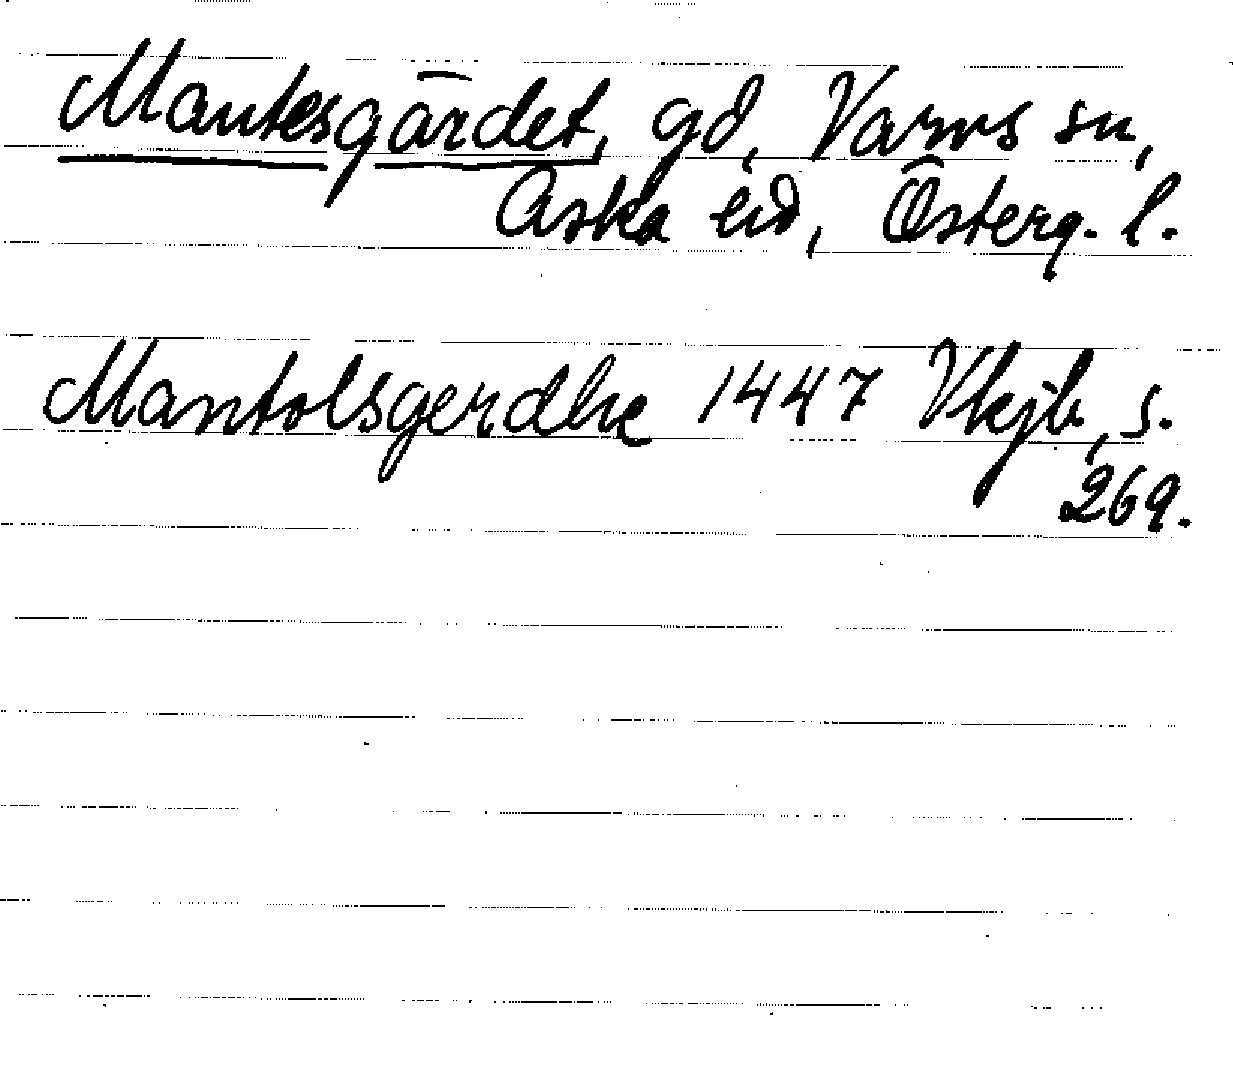 Mantesgärdet, gd, Varvs sn,
Aska hd, Österg. l.
Mantolsgerdhe 1447 Vkjb, s.
269.